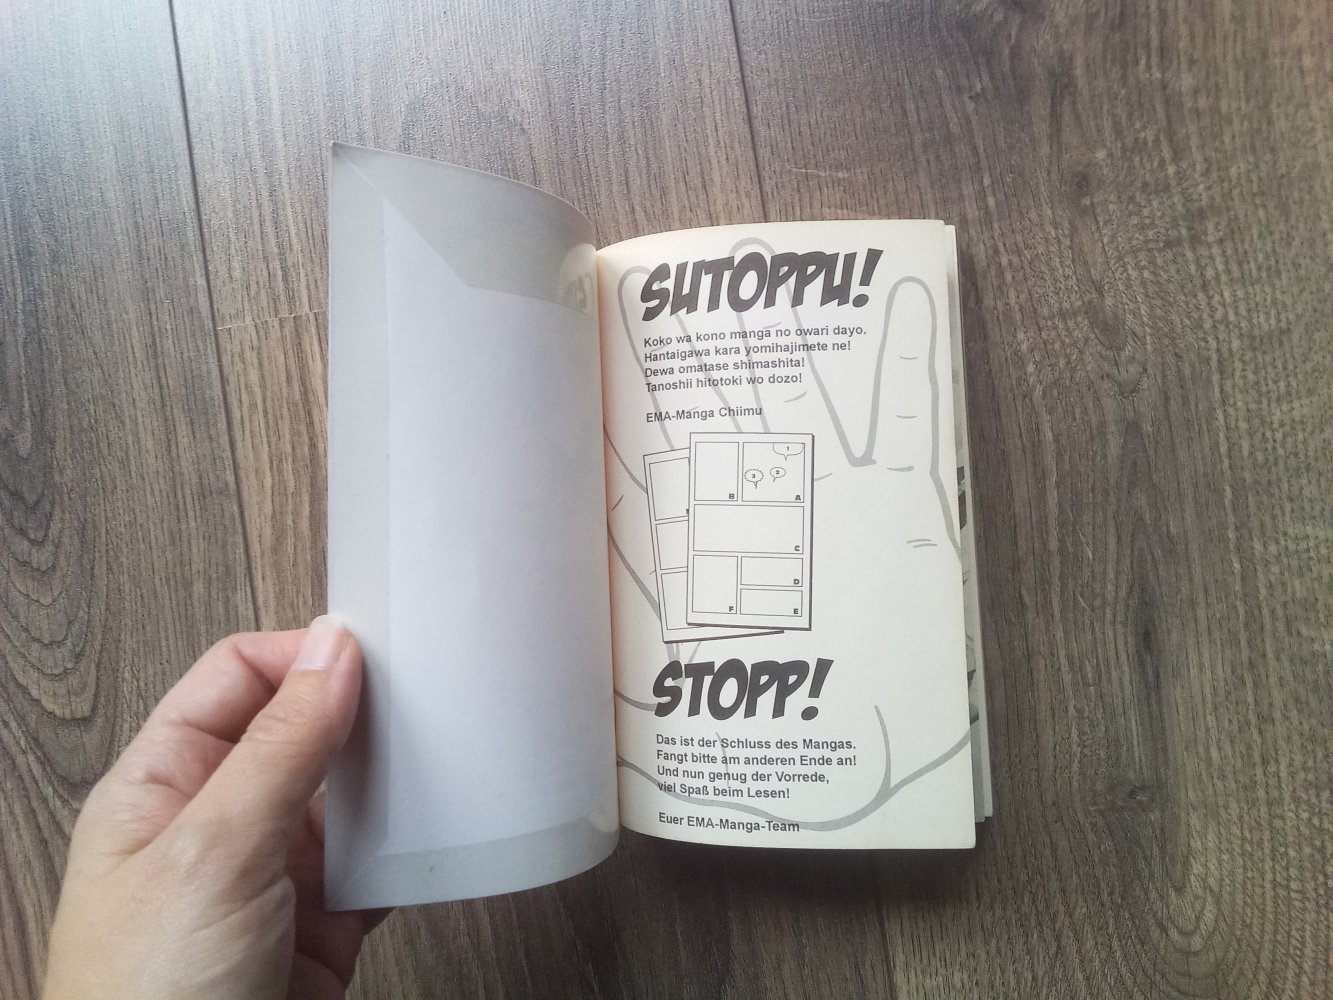 SUTOPPU!
Koko wa kono manga no owari dayo.
Hantaigawa kara yomihajimete ne!
Dewa omatase shimashita!
Tanoshii hitotoki wo dozo!
EMA-Manga Chiimu
1
3 2
B A
C
D
F E
STOPP!
Das ist der Schluss des Mangas.
Fangt bitte am anderen Ende an!
Und nun genug der Vorrede,
viel Spaß beim Lesen!
Euer EMA-Manga-Team